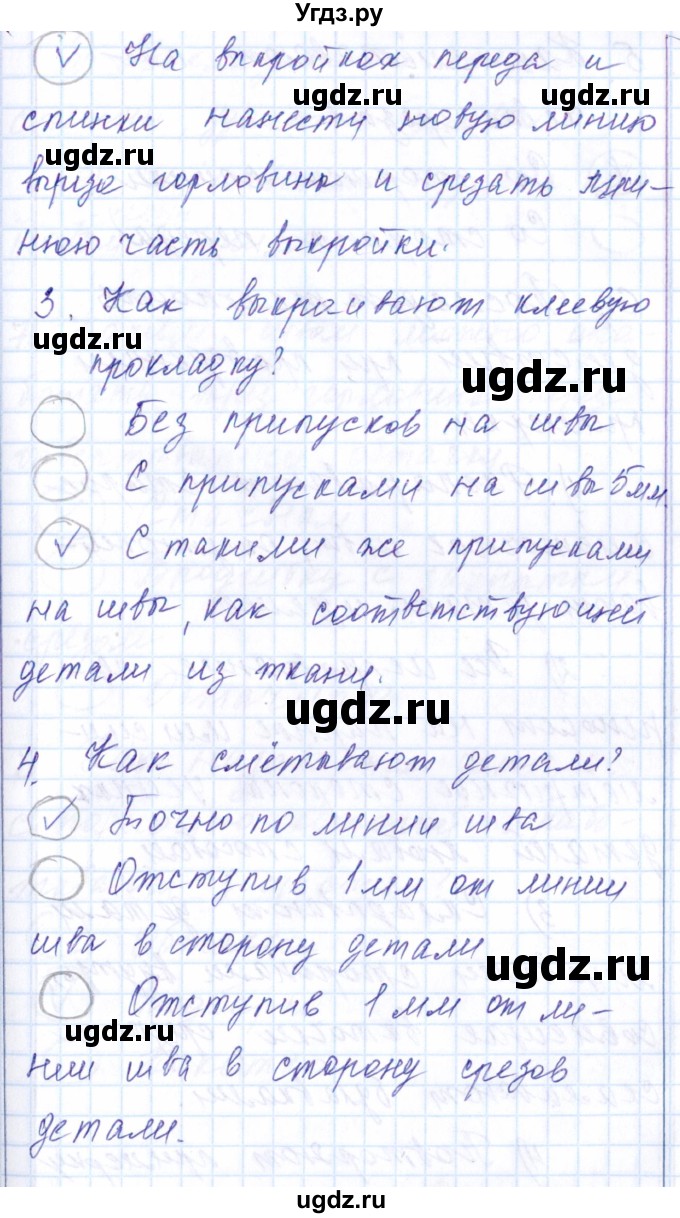 Угдз.ру
На выкройках переда и
ugdz.ru ugdz.ru
спинки нанести новую линию
ugdz.ru
выреза горловины и срезать лиш-
нюю часть выкройки.
3. Как выкраивают клеевую
ugdz.ru
прокладку?
ugdz.ru
Без припусков на швы
С припусками на швы 5 мм.
С такими же припусками
на швы, как соответствующей
детали из ткани.
ugdz.ru
4. Как смётывают детали?
Точно по линии шва
Отступив 1 мм от линии
шва в сторону детали
ugdz.ru
Отступив 1 мм от ли-
ugdz.ru
нии шва в сторону срезов
детали.
ugdz.ru